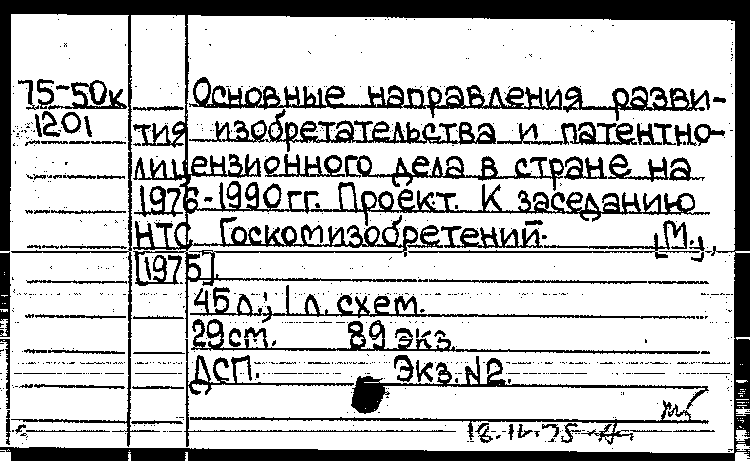 75-50к Основные направления разви-
1201 тия изобретательства и патентно-
лицензионного дела в стране на
1976-1990гг. Проект. К заседанию
НТС Госкомизобретений. [М.],
[1975].
45 л.; 1 л. схем.
29 см. 89 экз.
ДСП. Экз. N2.